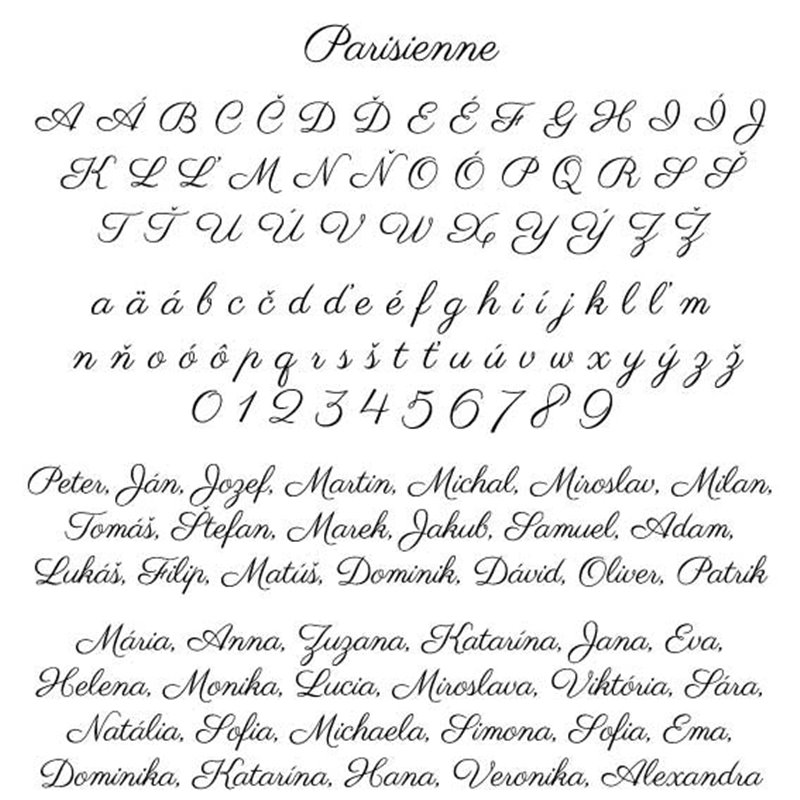 Parisienne
A Á B C Č D Ď E É F G H I Í J
K L Ľ M N Ň O Ó P Q R S Š
T Ť U Ú V W X Y Ý Z Ž
a ä á b c č d ď e é f g h i í j k l ľ m
n ň o ó ô p q r s š t ť u ú v w x y ý z ž
0 1 2 3 4 5 6 7 8 9
Peter, Ján, Jozef, Martin, Michal, Miroslav, Milan,
Tomáš, Štefan, Marek, Jakub, Samuel, Adam,
Lukáš, Filip, Matúš, Dominik, Dávid, Oliver, Patrik
Mária, Anna, Zuzana, Katarína, Jana, Eva,
Helena, Monika, Lucia, Miroslava, Viktória, Sára,
Natália, Sofia, Michaela, Simona, Sofia, Ema,
Dominika, Katarína, Hana, Veronika, Alexandra